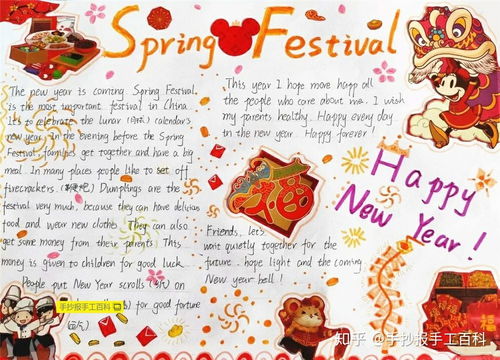 Spring Festival
The pew year is coming. Spring Festival
is the most important festival in China.
It's to celebrate the lunar calendar's
new year. in the evening before the Spring
Festival, families get together and have a big
meal. In many places people like to set off
firecrackers. Dumplings are the
festival very much, because they can have delicious
food and wear new clothes. They can also
get some money from their parents. This
money is given to children for good luck.
People put New Year scrolls on
for good fortune
This year I hope more happ all
the people who care about me. I wish
my parents healthy. Happy every day
in the new year. Happy forever!
福
Friends, let's
wait quietly together for the
future. hope light and the coming
New year bell!
Happy
New Year!
手抄报手工百科
知乎 @手抄报手工百科